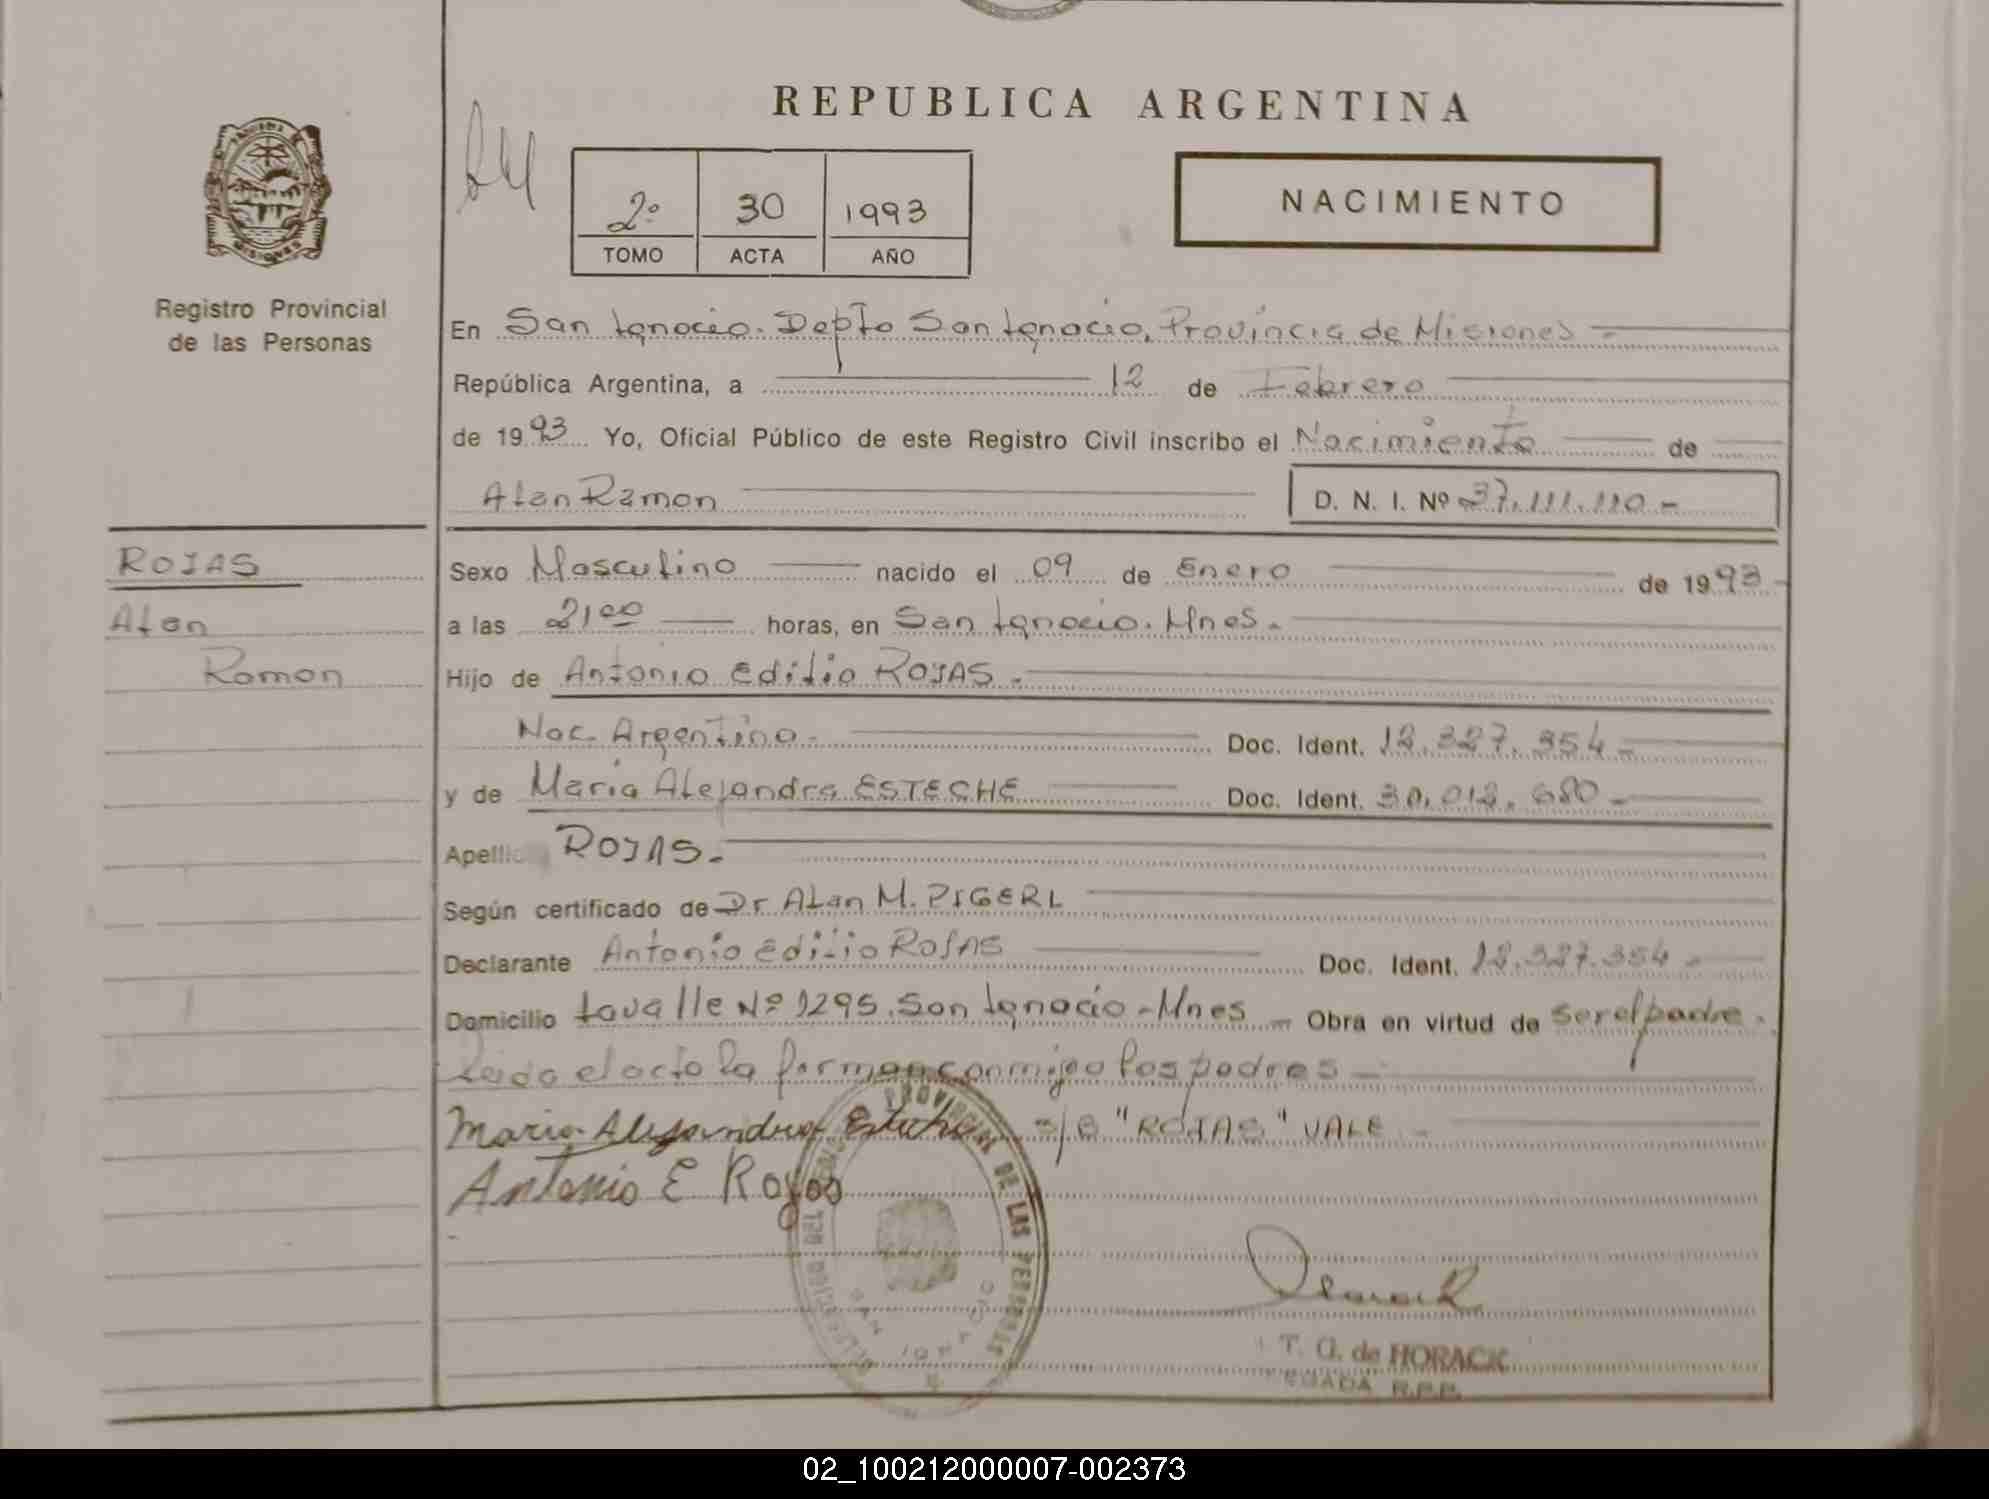 REPUBLICA ARGENTINA
2º 30 1993
TOMO ACTA AÑO
NACIMIENTO
MISIONES
Registro Provincial
de las Personas
En San Ignacio. Depto San Ignacio, Provincia de Misiones -
República Argentina, a 12 de Febrero
de 1993 Yo, Oficial Público de este Registro Civil inscribo el Nacimiento de
Alan Ramon D. N. I. Nº 37.111.110 -
ROJAS
Alan
Ramon
Sexo Masculino nacido el 09 de Enero de 1993 -
a las 21 00 horas, en San Ignacio. Mnes. -
Hijo de Antonio Edilio ROJAS. -
Nac. Argentino. - Doc. Ident. 12.327.354 -
y de Maria Alejandra ESTECHE Doc. Ident. 30.012.680 -
Apellido ROJAS. -
Según certificado de Dr Alan M. PIGERL
Declarante Antonio Edilio ROJAS Doc. Ident. 12.327.354 -
Domicilio Lavalle Nº 1295. San Ignacio - Mnes - Obra en virtud de ser el padre.
Leida el acto la firman conmigo los padres -
Maria Alejandra Esteche s/B "ROJAS" VALE -
Antonio E Rojas
PROVINCIAL DE LAS PERSONAS
SAN IGNACIO
T. G. de HORACK
R.P.P.
02_100212000007-002373